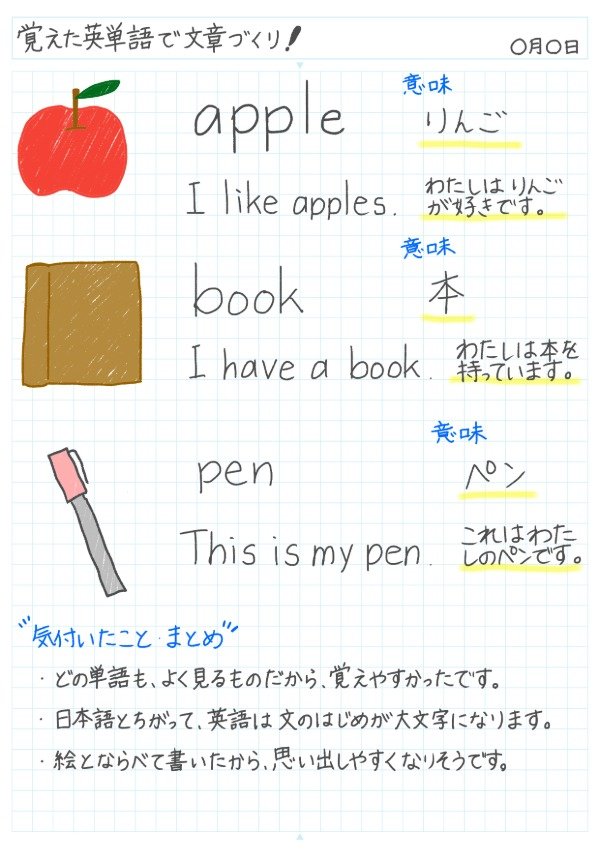 覚えた英単語で文章づくり!
○月○日
apple
意味
りんご
I like apples.
わたしは りんご
が好きです。
book
意味
本
I have a book.
わたしは本を
持っています。
pen
意味
ペン
This is my pen.
これはわた
しのペンです。
"気付いたこと・まとめ"
・どの単語も、よく見るものだから、覚えやすかったです。
・日本語とちがって、英語は 文のはじめが大文字になります。
・絵とならべて書いたから、思い出しやすくなりそうです。